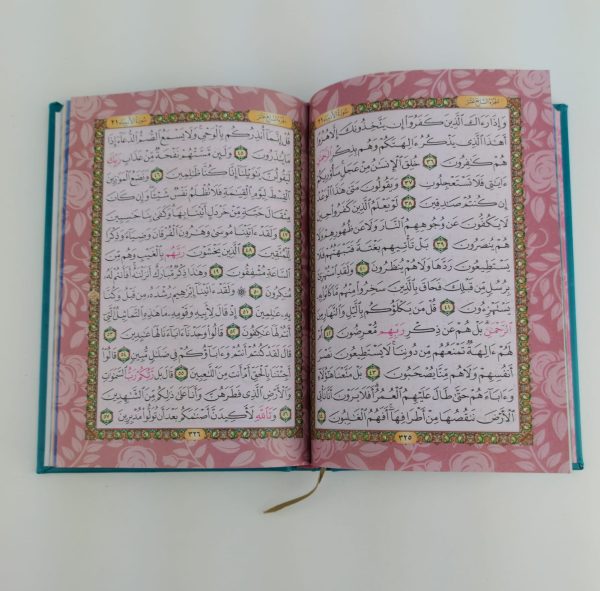 سُورَةُ الأَنبِيَاءِ ٢١
الجُزءُ السَّابِعَ عَشَرَ
وَإِذَا رَءَاكَ ٱلَّذِينَ كَفَرُوٓاْ إِن يَتَّخِذُونَكَ إِلَّا هُزُوًا
أَهَٰذَا ٱلَّذِى يَذۡكُرُ ءَالِهَتَكُمۡ وَهُم بِذِكۡرِ ٱلرَّحۡمَٰنِ
هُمۡ كَٰفِرُونَ ٣٦ خُلِقَ ٱلۡإِنسَٰنُ مِنۡ عَجَلٖۚ سَأُوْرِيكُمۡ
ءَايَٰتِى فَلَا تَسۡتَعۡجِلُونِ ٣٧ وَيَقُولُونَ مَتَىٰ هَٰذَا ٱلۡوَعۡدُ
إِن كُنتُمۡ صَٰدِقِينَ ٣٨ لَوۡ يَعۡلَمُ ٱلَّذِينَ كَفَرُواْ حِينَ
لَا يَكُفُّونَ عَن وُجُوهِهِمُ ٱلنَّارَ وَلَا عَن ظُهُورِهِمۡ وَلَا
هُمۡ يُنصَرُونَ ٣٩ بَلۡ تَأۡتِيهِم بَغۡتَةٗ فَتَبۡهَتُهُمۡ فَلَا
يَسۡتَطِيعُونَ رَدَّهَا وَلَا هُمۡ يُنظَرُونَ ٤٠ وَلَقَدِ ٱسۡتُهۡزِئَ
بِرُسُلٖ مِّن قَبۡلِكَ فَحَاقَ بِٱلَّذِينَ سَخِرُواْ مِنۡهُم مَّا كَانُواْ بِهِۦ
يَسۡتَهۡزِءُونَ ٤١ قُلۡ مَن يَكۡلَؤُكُم بِٱلَّيۡلِ وَٱلنَّهَارِ مِنَ
ٱلرَّحۡمَٰنِۚ بَلۡ هُمۡ عَن ذِكۡرِ رَبِّهِم مُّعۡرِضُونَ ٤٢ أَمۡ
لَهُمۡ ءَالِهَةٞ تَمۡنَعُهُم مِّن دُونِنَاۚ لَا يَسۡتَطِيعُونَ نَصۡرَ
أَنفُسِهِمۡ وَلَا هُم مِّنَّا يُصۡحَبُونَ ٤٣ بَلۡ مَتَّعۡنَا هَٰٓؤُلَآءِ
وَءَابَآءَهُمۡ حَتَّىٰ طَالَ عَلَيۡهِمُ ٱلۡعُمُرُۗ أَفَلَا يَرَوۡنَ أَنَّا نَأۡتِى
ٱلۡأَرۡضَ نَنقُصُهَا مِنۡ أَطۡرَافِهَآۚ أَفَهُمُ ٱلۡغَٰلِبُونَ ٤٤
٣٢٥
الجُزءُ السَّابِعَ عَشَرَ
سُورَةُ الأَنبِيَاءِ ٢١
قُلۡ إِنَّمَآ أُنذِرُكُم بِٱلۡوَحۡيِۚ وَلَا يَسۡمَعُ ٱلصُّمُّ ٱلدُّعَآءَ إِذَا
مَا يُنذَرُونَ ٤٥ وَلَئِن مَّسَّتۡهُمۡ نَفۡحَةٞ مِّنۡ عَذَابِ رَبِّكَ
لَيَقُولُنَّ يَٰوَيۡلَنَآ إِنَّا كُنَّا ظَٰلِمِينَ ٤٦ وَنَضَعُ ٱلۡمَوَٰزِينَ
ٱلۡقِسۡطَ لِيَوۡمِ ٱلۡقِيَٰمَةِ فَلَا تُظۡلَمُ نَفۡسٞ شَيۡـٔٗاۖ وَإِن كَانَ
مِثۡقَالَ حَبَّةٖ مِّنۡ خَرۡدَلٍ أَتَيۡنَا بِهَاۗ وَكَفَىٰ بِنَا حَٰسِبِينَ
٤٧ وَلَقَدۡ ءَاتَيۡنَا مُوسَىٰ وَهَٰرُونَ ٱلۡفُرۡقَانَ وَضِيَآءٗ وَذِكۡرٗا
لِّلۡمُتَّقِينَ ٤٨ ٱلَّذِينَ يَخۡشَوۡنَ رَبَّهُم بِٱلۡغَيۡبِ وَهُم مِّنَ
ٱلسَّاعَةِ مُشۡفِقُونَ ٤٩ وَهَٰذَا ذِكۡرٞ مُّبَارَكٌ أَنزَلۡنَٰهُۚ أَفَأَنتُمۡ لَهُۥ
مُنكِرُونَ ٥٠ ۞ وَلَقَدۡ ءَاتَيۡنَآ إِبۡرَٰهِيمَ رُشۡدَهُۥ مِن قَبۡلُ وَكُنَّا
بِهِۦ عَٰلِمِينَ ٥١ إِذۡ قَالَ لِأَبِيهِ وَقَوۡمِهِۦ مَا هَٰذِهِ ٱلتَّمَاثِيلُ ٱلَّتِىٓ
أَنتُمۡ لَهَا عَٰكِفُونَ ٥٢ قَالُواْ وَجَدۡنَآ ءَابَآءَنَا لَهَا عَٰبِدِينَ ٥٣
قَالَ لَقَدۡ كُنتُمۡ أَنتُمۡ وَءَابَآؤُكُمۡ فِى ضَلَٰلٖ مُّبِينٖ ٥٤ قَالُوٓاْ
أَجِئۡتَنَا بِٱلۡحَقِّ أَمۡ أَنتَ مِنَ ٱللَّٰعِبِينَ ٥٥ قَالَ بَل رَّبُّكُمۡ رَبُّ ٱلسَّمَٰوَٰتِ
وَٱلۡأَرۡضِ ٱلَّذِى فَطَرَهُنَّ وَأَنَا۠ عَلَىٰ ذَٰلِكُم مِّنَ ٱلشَّٰهِدِينَ
٥٦ وَتَٱللَّهِ لَأَكِيدَنَّ أَصۡنَٰمَكُم بَعۡدَ أَن تُوَلُّواْ مُدۡبِرِينَ ٥٧
٣٢٦